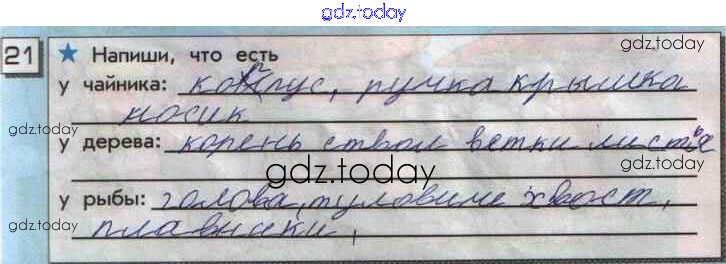 gdz.today
21 ★ Напиши, что есть
gdz.today
у чайника: корпус, ручка крышка
носик
gdz.today
у дерева: корень ствол ветки листья
gdz.today
gdz.today
у рыбы: голова, туловище хвост,
gdz.today
плавники,